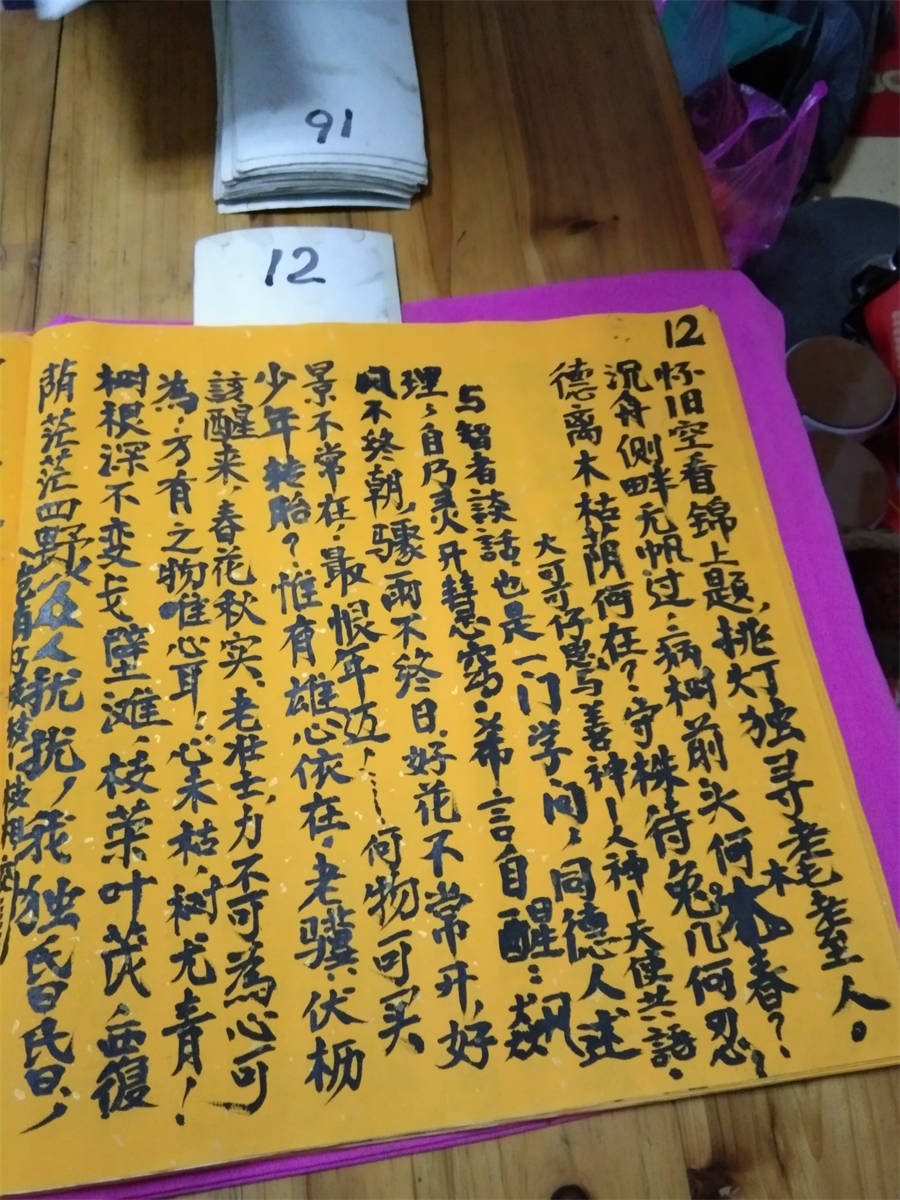 91
12
12
怀旧空看锦上题，挑灯独寻老耄人。
沉舟侧畔无帆过，病树前头何木春？
德离木枯荫何在？守株待兔几何忍？
大可可仔思与善神一人神一天使共語.
与智者談话也是一门学问，同德人述
理，自乃灵火开慧窍.希言自醒：飙
风不终朝，骤雨不终日.好花不常开，好
景不常在，最恨年迈，何物可买
少年转胎？惟有雄心依在，老骥伏枥
該醒来，春花秋实，老壮士，力不可為心可
為，万有之物唯心耳，心未枯，树尤青！
树根深不变戈壁滩，枝葉叶茂，复
荫茫茫四野，众人扰扰，我独氏日氏日，